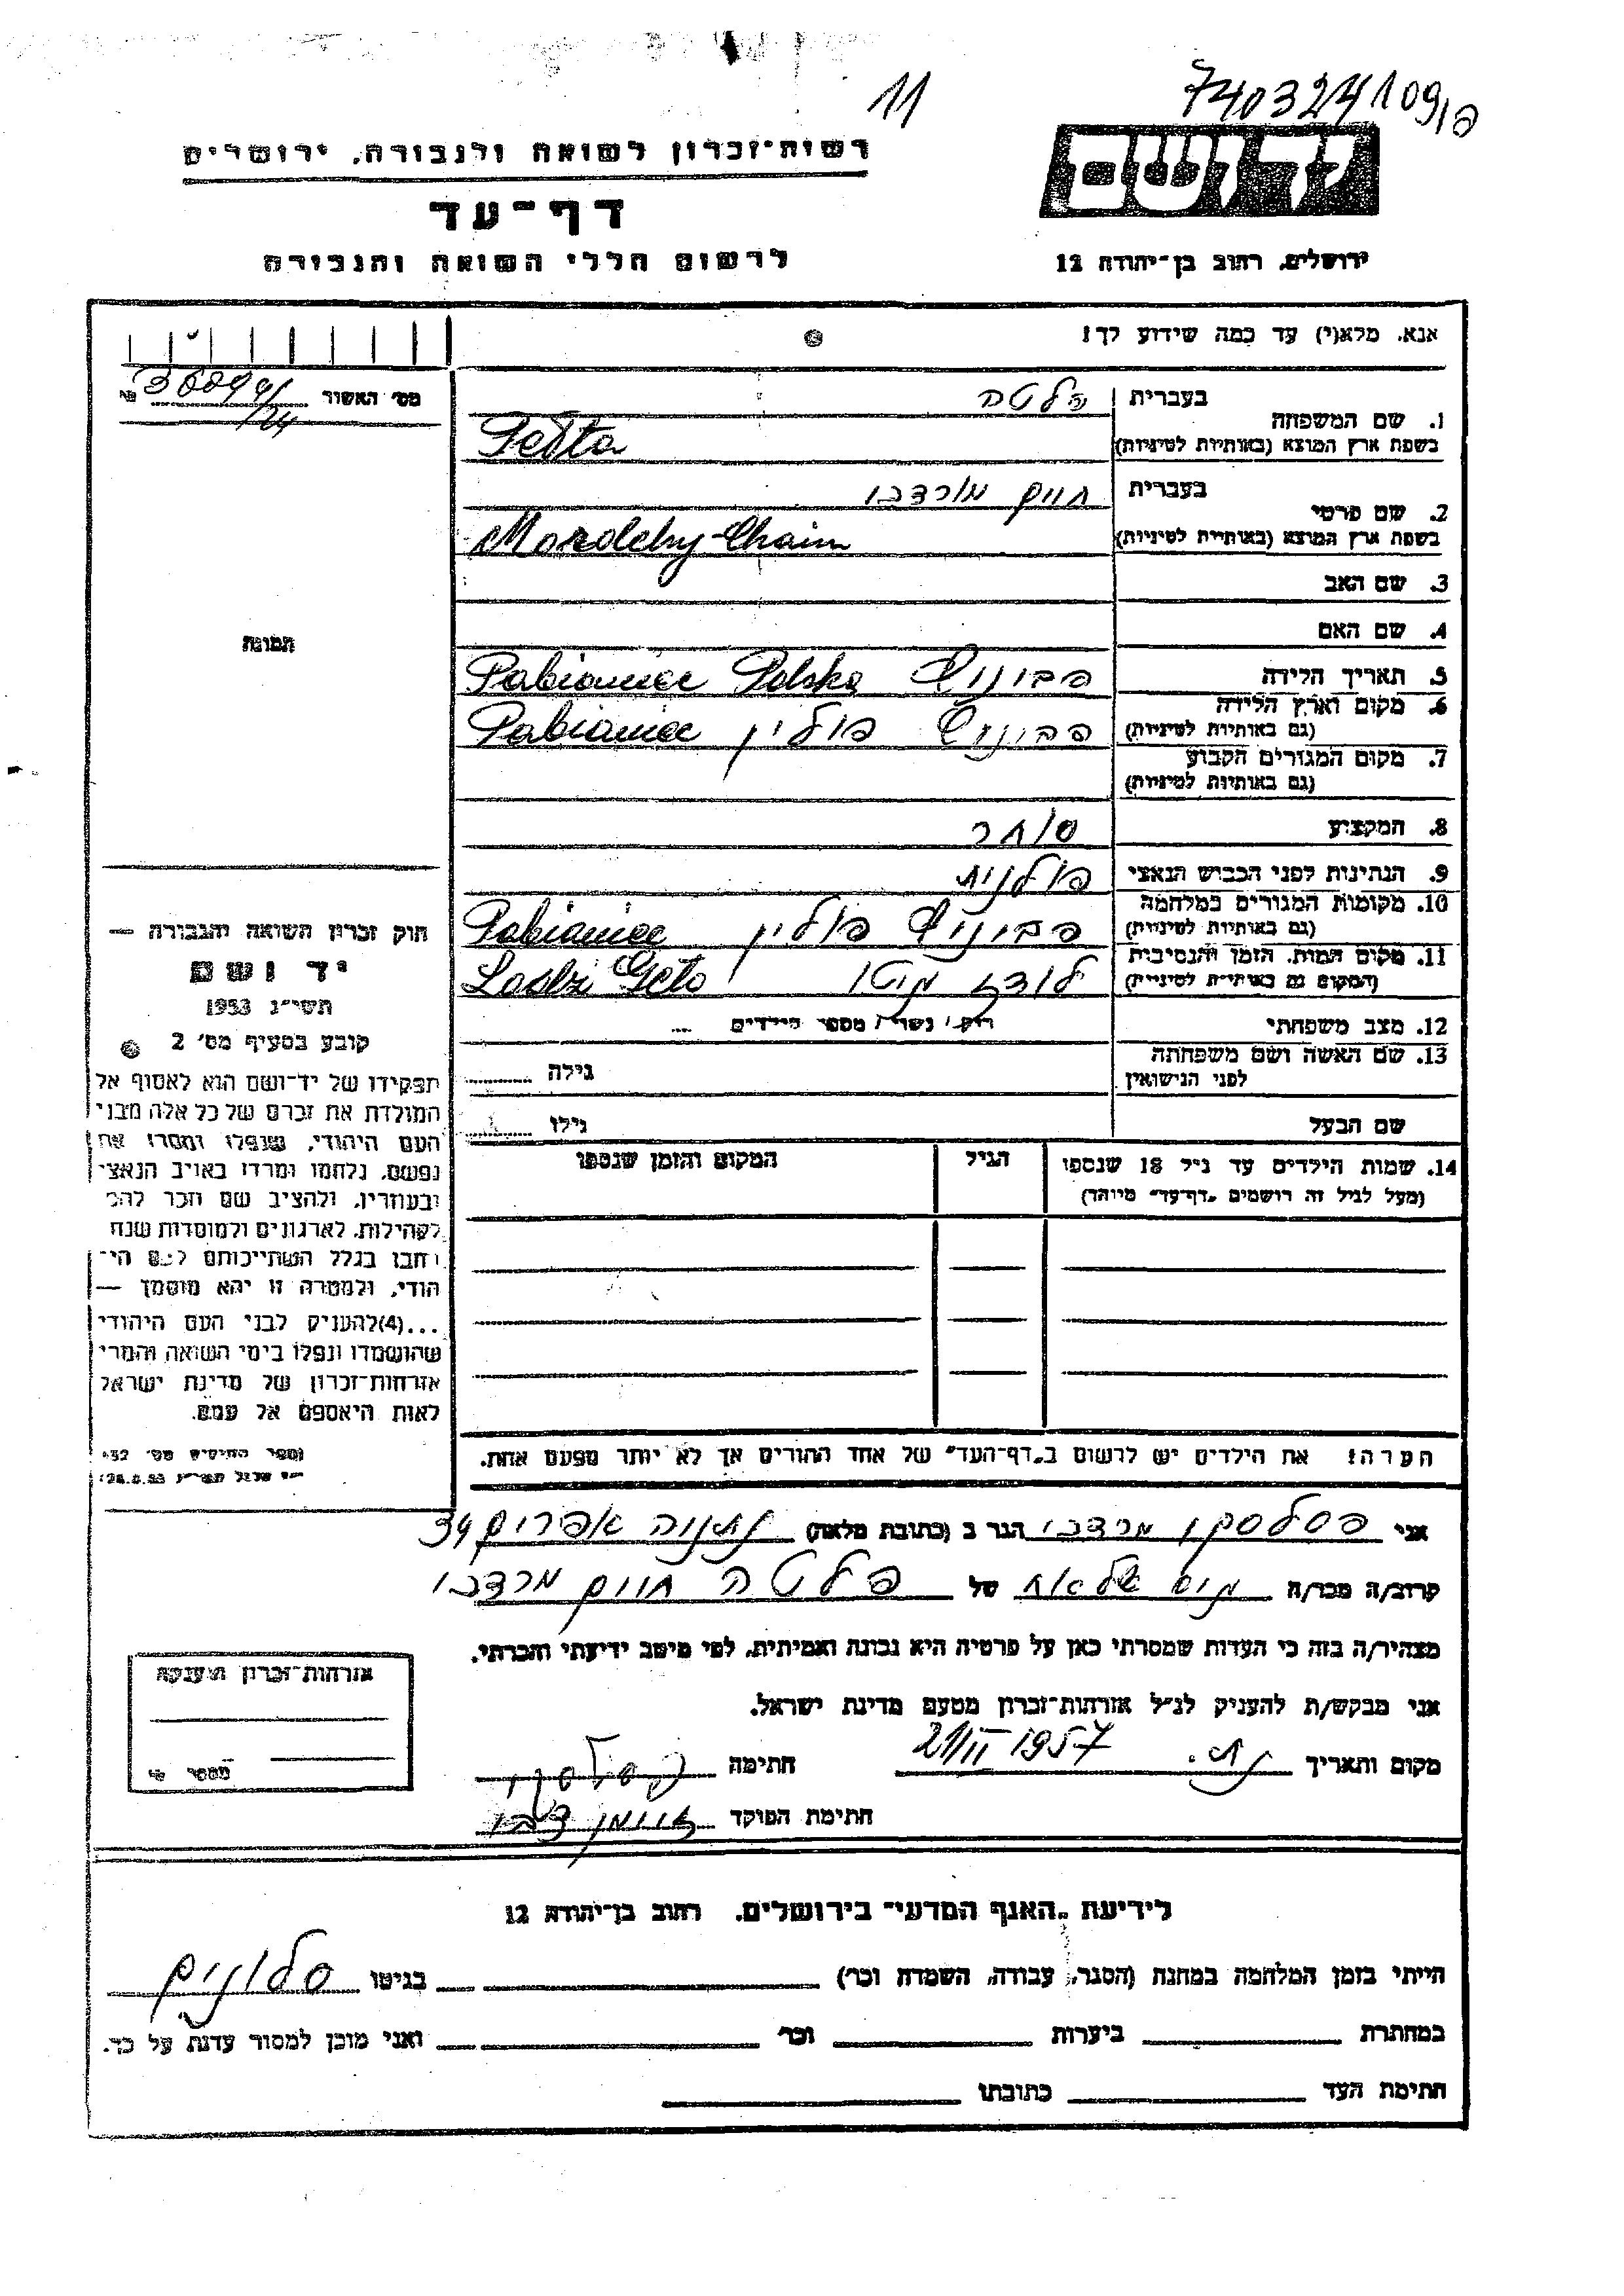 11
740324109/פ
רשות-זכרון לשואה ולגבורה, ירושלים
יד ושם
דף-עד
לרשום חללי השואה והגבורה
ירושלים, רחוב בן-יהודה 12
אנא, מלא(י) עד כמה שידוע לך!
מס' האשור
1. שם המשפחה
בעברית פלטה
בשפת ארץ המוצא (באותיות לטיניות) Pełta
2. שם פרטי
בעברית חיים מורדכי
בשפת ארץ המוצא (באותיות לטיניות) Mordchy-Chaim
3. שם האב
4. שם האם
תמונה
5. תאריך הלידה
פביוניץ Pabianice Polska
6. מקום וארץ הלידה
(גם באותיות לטיניות) פביוניץ פולין Pabianice
7. מקום המגורים הקבוע
(גם באותיות לטיניות)
8. המקצוע סוחר
9. הנתינות לפני הכבוש הנאצי פולנית
10. מקומות המגורים במלחמה
(גם באותיות לטיניות) פביוניץ פולין Pabianice
11. מקום המות, הזמן והנסיבות
(המקום גם באותיות לטיניות) לודז גיטו Lodzi Geto
12. מצב משפחתי רוק / נשוי / מספר הילדים ...
13. שם האשה ושם משפחתה
לפני הנישואין גילה
שם הבעל גילו
14. שמות הילדים עד גיל 18 שנספו הגיל המקום והזמן שנספו
(מעל לגיל זה רושמים "דף-עד" מיוחד)
חוק זכרון השואה והגבורה —
יד ושם
תשי"ג 1953
קובע בסעיף מס' 2
תפקידו של יד-ושם הוא לאסוף אל
המולדת את זכרם של כל אלה מבני
העם היהודי, שנפלו ומסרו את
נפשם, נלחמו ומרדו באויב הנאצי
ובעוזריו, ולהציב שם וזכר להם
לקהילות, לארגונים ולמוסדות שנח
רבו בגלל השתייכותם לעם הי-
הודי, ולמטרה זו יהא מוסמך —
...(4) להעניק לבני העם היהודי
שהושמדו ונפלו בימי השואה והמרי
אזרחות-זכרון של מדינת ישראל
לאות היאספם אל עמם.
הערה! את הילדים יש לרשום ב"דף-העד" של אחד ההורים אך לא יותר מפעם אחת.
אני פסלסקי מרדכי הגר ב (כתובת מלאה) נתניה אפרים 34
קרוב/ה מכר/ה של פלטה חיים מרדכי
מצהיר/ה בזה כי העדות שמסרתי כאן על פרטיה היא נכונה ואמיתית, לפי מיטב ידיעתי והכרתי.
אני מבקש/ת להעניק לנ"ל אזרחות-זכרון מטעם מדינת ישראל.
מקום ותאריך נת. 21/II 1957 חתימה
חתימת הפוקד
אזרחות-זכרון הוענקה
מספר
לידיעת "האגף המדעי" בירושלים, רחוב בן-יהודה 12
הייתי בזמן המלחמה במחנה (הסגר, עבודה, השמדה וכו') בגיטו סלונים
במחתרת ביערות וכו' ואני מוכן למסור עדות על כך.
חתימת העד כתובתו